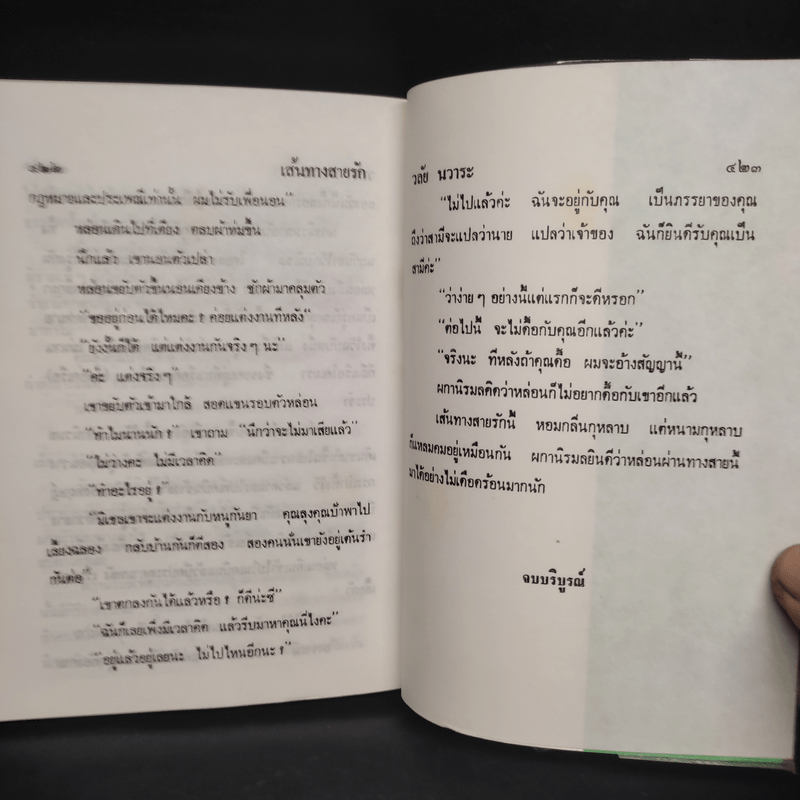 ๔๒๒ เส้นทางสายรัก
กฎหมายและประเพณีเท่านั้น ผมไม่รับเพื่อนอน”
หล่อนเดินไปที่เตียง ตลบผ้าห่มขึ้น
นึกแล้ว เขานอนตัวเปล่า
หล่อนขยับตัวขึ้นนอนเคียงข้าง ชักผ้ามาคลุมตัว
“ขออยู่ก่อนได้ไหมคะ ? ค่อยแต่งงานทีหลัง”
“ยังงั้นก็ได้ แต่แต่งงานกันจริง ๆ นะ”
“ค่ะ แต่งจริง ๆ”
เขาขยับตัวเข้ามาใกล้ สอดแขนรอบตัวหล่อน
“ทำไมนานนัก ? เขาถาม “นึกว่าจะไม่มาเสียแล้ว”
“ไม่ว่างคะ ไม่มีเวลาคิด”
“ทำอะไรอยู่ ?
“มิเชลเขาจะแต่งงานกับหนูกันยา คุณลุงคุณป้าพาไป
เลี้ยงฉลอง กลับบ้านกันก็ตีสอง สองคนนั่นเขายังอยู่เต้นรำ
กันต่อ”
“เขาตกลงกันได้แล้วหรือ ? ก็ดีน่ะซี”
“ฉันก็เลยเพิ่งมีเวลาคิด แล้วรีบมาหาคุณนี่ไงคะ”
“อยู่แล้วอยู่เลยนะ ไม่ไปไหนอีกนะ ?
วลัย นวาระ ๔๒๓
“ไม่ไปแล้วค่ะ ฉันจะอยู่กับคุณ เป็นภรรยาของคุณ
ถึงว่าสามีจะแปลว่านาย แปลว่าเจ้าของ ฉันก็ยินดีรับคุณเป็น
สามีค่ะ”
“ว่าง่าย ๆ อย่างนี้แต่แรกก็จะดีหรอก”
“ต่อไปนี้ จะไม่ดื้อกับคุณอีกแล้วค่ะ”
“จริงนะ ทีหลังถ้าคุณดื้อ ผมจะอ้างสัญญานี้”
ผกานิรมลคิดว่าหล่อนก็ไม่อยากดื้อกับเขาอีกแล้ว
เส้นทางสายรักนี้ หอมกลิ่นกุหลาบ แต่หนามกุหลาบ
ก็แหลมคมอยู่เหมือนกัน ผกานิรมลยินดีว่าหล่อนผ่านทางสายนี้
มาได้อย่างไม่เดือดร้อนมากนัก
จบบริบูรณ์